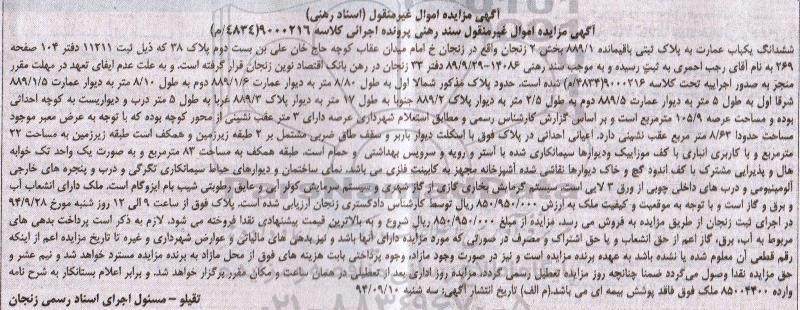 آگهی مزایده اموال غیرمنقول (اسناد رهنی)
آگهی مزایده اموال غیرمنقول سند رهنی پرونده اجرائی کلاسه ۹۰۰۰۲۱۶(۴۸۳۴/م)
ششدانگ یکباب عمارت به پلاک ثبتی باقیمانده ۸۸۹/۱ بخش ۲ زنجان واقع در زنجان خ امام میدان عقاب کوچه حاج خان علی بن بست دوم پلاک ۳۸ که ذیل ثبت ۱۱۲۱۱ دفتر ۱۰۴ صفحه
۲۶۹ به نام آقای رجب احمری به ثبت رسیده و به موجب سند رهنی ۱۴۰۸۶-۸۹/۹/۲۹ دفتر ۳۳ زنجان در رهن بانک اقتصاد نوین زنجان قرار گرفته است. و به علت عدم ایفای تعهد در مهلت مقرر
منجر به صدور اجراییه تحت کلاسه ۹۰۰۰۲۱۶(۴۸۳۴/م) شده است. حدود پلاک مذکور شمالا اول به طول ۸/۱۰ متر به دیوار عمارت ۸۸۹/۱/۶ دوم به طول ۸/۱۰ متر به دیوار عمارت ۸۸۹/۱/۵
شرقا اول به طول ۵ متر به دیوار عمارت ۸۸۹/۵ دوم به طول ۲/۵ متر به دیوار پلاک ۸۸۹/۲ جنوبا به طول ۱۷ متر به دیوار پلاک ۸۸۹/۳ غربا به طول ۵ متر درب و دیواریست به کوچه احداثی
بوده و مساحت عرصه ۱۰۵/۹ مترمربع است و بر اساس گزارش کارشناس رسمی و مطابق استعلام شهرداری عرصه دارای ۳ متر عقب نشینی از محور کوچه بوده که با توجه به عرض معبر موجود
مساحت حدودا ۸/۶۳ متر مربع عقب نشینی دارد. اعیانی احداثی در پلاک فوق با اسکلت دیوار باربر و سقف طاق ضربی مشتمل بر ۲ طبقه زیرزمین و همکف است طبقه زیرزمین به مساحت ۲۲
مترمربع و با کاربری انباری با کف موزاییک ودیوارها سیمانکاری شده با آستر و رویه و سرویس بهداشتی و حمام است. طبقه همکف به مساحت ۸۳ مترمربع و به صورت یک واحد تک خوابه
هال و پذیرایی مشترک با کف اندود گچ و خاک دیوارها نقاشی شده آشپزخانه مجهز به کابینت فلزی می باشد. نمای ساختمان و دیوارهای حیاط سیمانکاری تگرگی و درب و پنجره های خارجی
آلومینیومی و درب های داخلی چوبی از ورق ۳ لایی است. سیستم گرمایش بخاری گازی از گاز شهری و سیستم سرمایش کولر آبی و عایق رطوبتی شیب بام ایزوگام است. ملک دارای انشعاب آب
و برق و گاز است و با توجه به موقعیت و کیفیت ملک به ارزش ۸۵۰/۹۵۰/۰۰۰ ریال توسط کارشناس دادگستری زنجان ارزیابی شده است. پلاک فوق از ساعت ۹ الی ۱۲ روز شنبه مورخ ۹۴/۹/۲۸
در اجرای ثبت زنجان از طریق مزایده به فروش می رسد. مزایده از مبلغ ۸۵۰/۹۵۰/۰۰۰ ریال شروع و به بالاترین قیمت پیشنهادی نقدا فروخته می شود. لازم به ذکر است پرداخت بدهی های
مربوط به آب، برق، گاز اعم از حق انشعاب و یا حق اشتراک و مصرف در صورتی که مورد مزایده دارای آنها باشد و نیز بدهی های مالیاتی و عوارض شهرداری و غیره تا تاریخ مزایده اعم از اینکه
رقم قطعی آن معلوم شده یا نشده باشد به عهده برنده مزایده است و نیز در صورت وجود مازاد، وجوه پرداختی بابت هزینه های فوق از محل مازاد به برنده مزایده مسترد خواهد شد و نیم عشر و
حق مزایده نقدا وصول می‌گردد ضمنا چنانچه روز مزایده تعطیل رسمی گردد، مزایده روز اداری بعد از تعطیلی در همان ساعت و مکان مقرر برگزار خواهد شد. و برابر اعلام بستانکار به شرح نامه
وارده ۸۵۰۰۴۴۰۰ ملک فوق فاقد پوشش بیمه ای می باشد.(م الف) تاریخ انتشار آگهی: سه شنبه ۹۴/۰۹/۱۰
تقیلو – مسئول اجرای اسناد رسمی زنجان